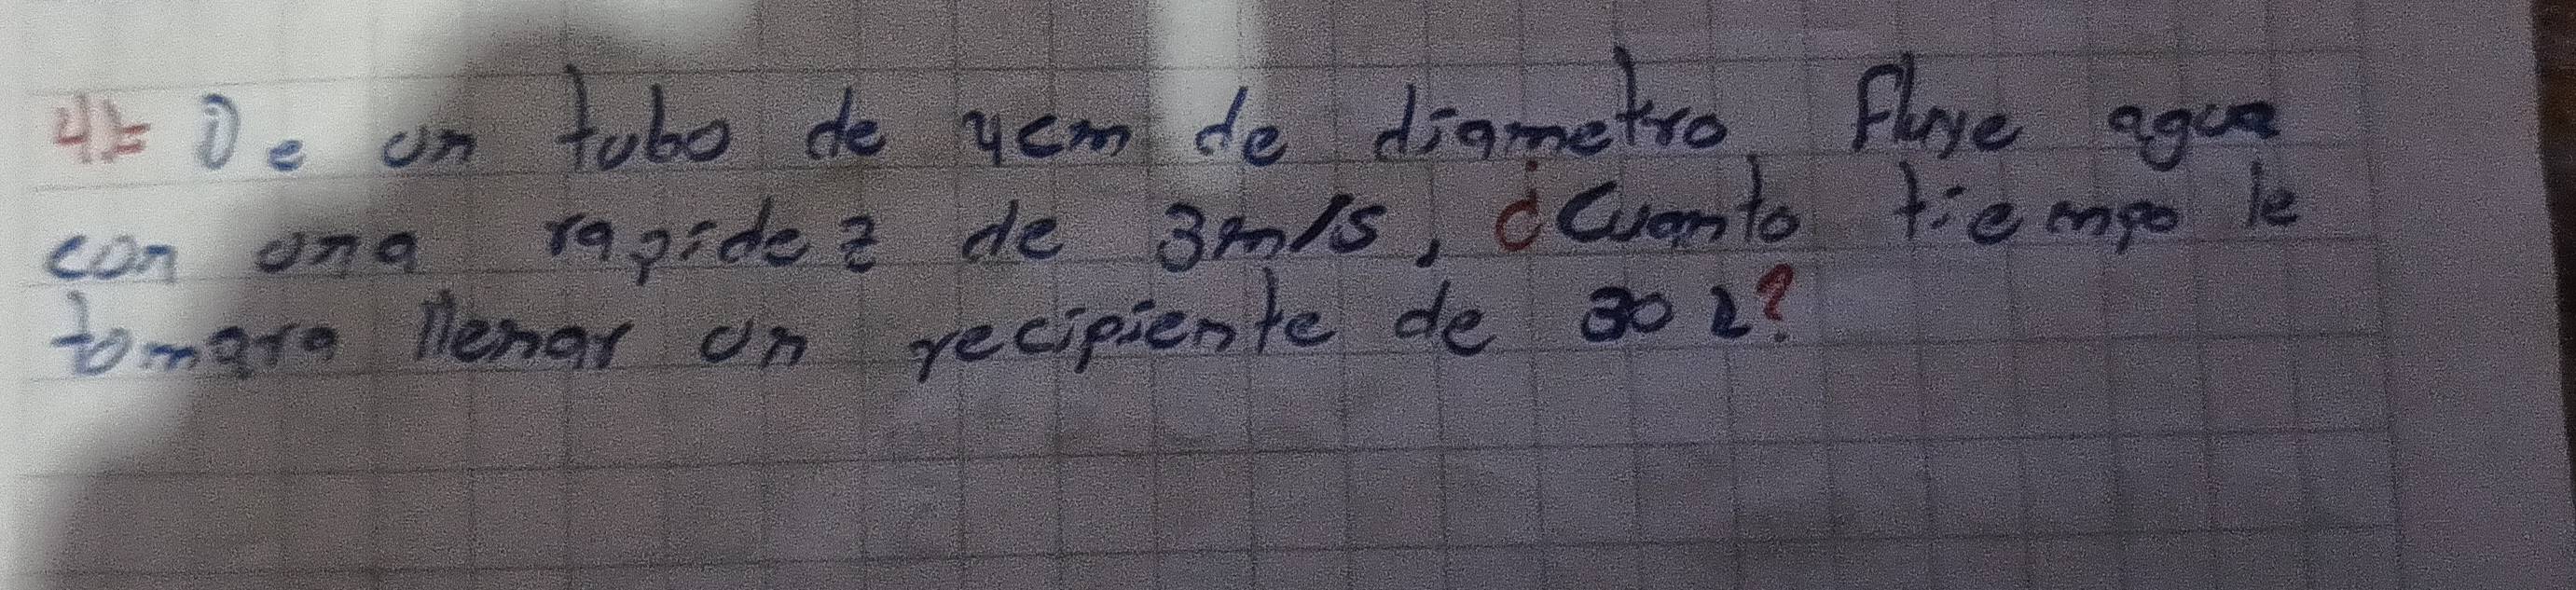 4)= De un tubo de 4cm de diametro, fluye agua
con una rapidez de 3m/s, ¿Cuanto tiempo le
tomara llenar un recipiente de 30 L?